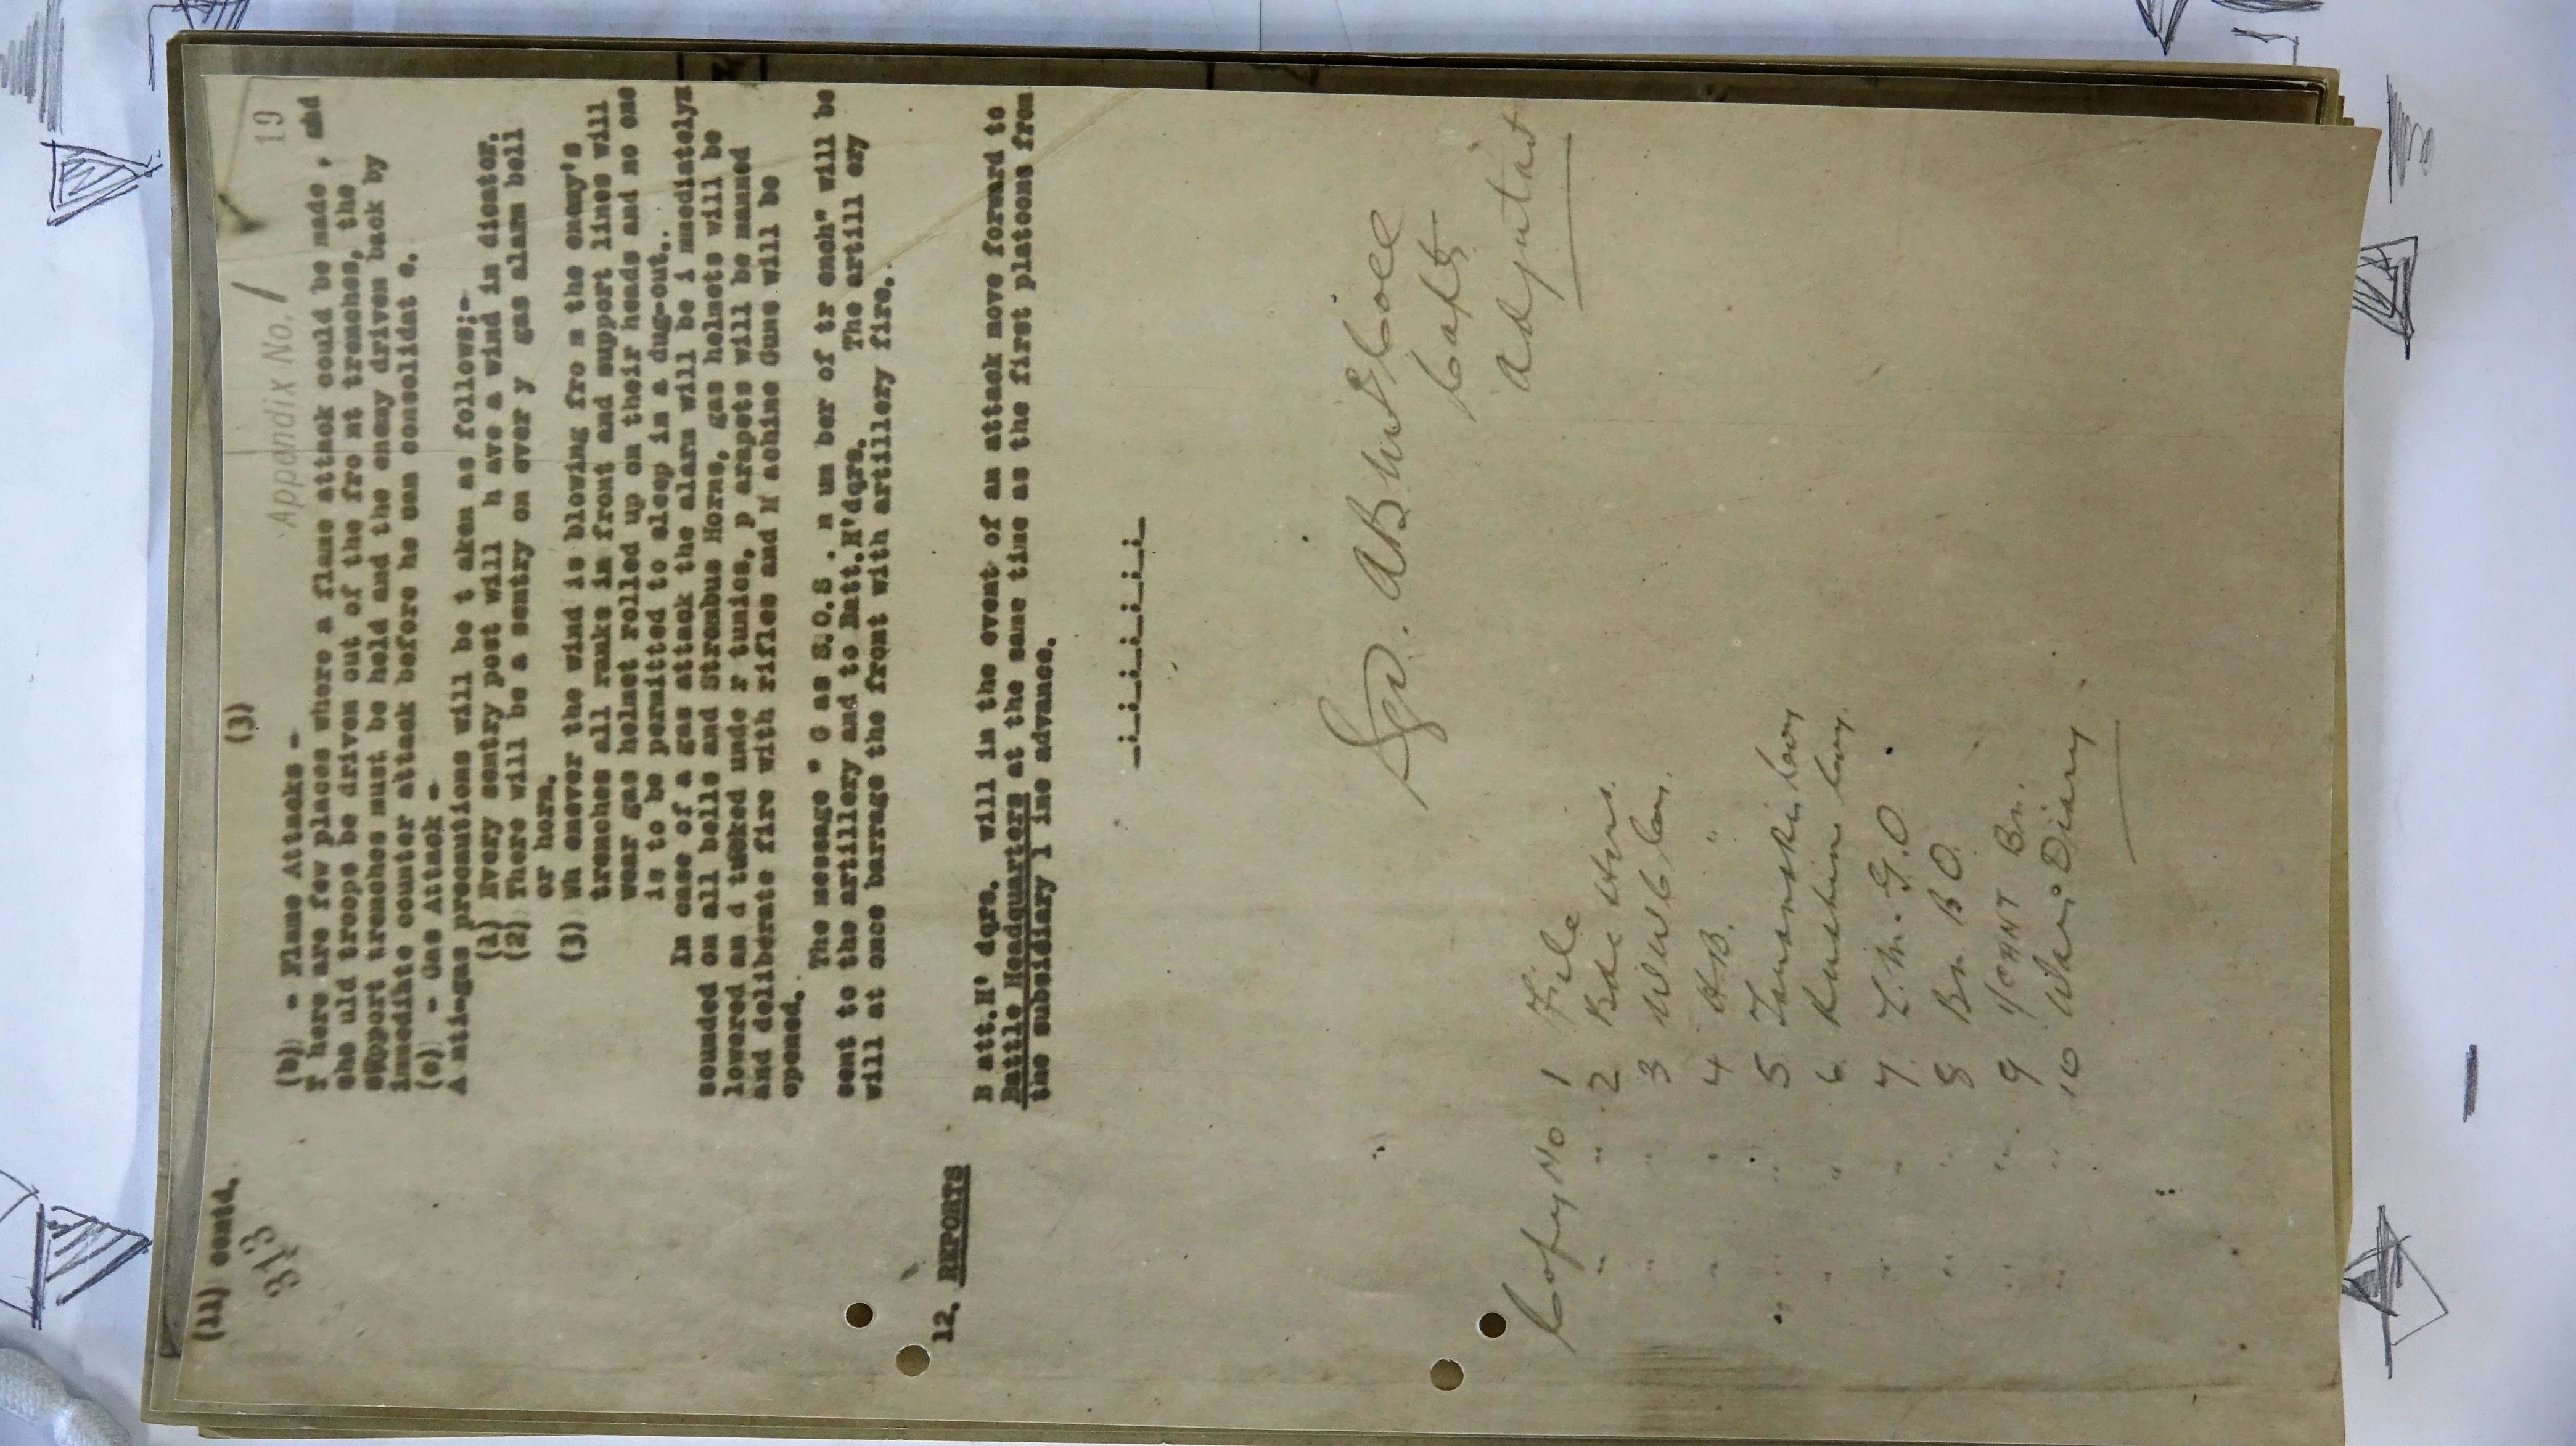 (3)
19
(11) contd.
Appendix No. 1
313
(b) - Flame Attacks -
T here are few places where a flame attack could be made , and
sho uld troops be driven out of the fro nt trenches, the
support trenches must be held and the enemy driven back by
immediate counter attack before he can consolidat e.
(c) - Gas Attack -
A nti-gas precautions will be t aken as follows;-
(1) Every sentry post will h ave a wind in dicator.
(2) There will be a sentry on ever y gas alam bell
or horn.
(3) Wh enever the wind is blowing fro m the enemy's
trenches all ranks in front and support lines will
wear gas helmet rolled up on their heads and no one
is to be permitted to sleep in a dug-out..
In case of a gas attack the alarm will be i mmediately
sounded on all bells and Strombus Horns, gas helmets will be
lowered an d tucked unde r tunics, p arapets will be manned
and deliberate fire with rifles and M achine Guns will be
opened.
The message " G as S.O.S . n um ber of tr ench" will be
sent to the artillery and to Batt.H'dqrs. The artill ery
will at once barrage the front with artillery fire.
12. REPORTS
B att.H' dqrs. will in the event of an attack move forward to
Battle Headquarters at the same time as the first platoons from
the subsidiary l ine advance.
_:_:_:_:_:_:_
Sgd.
Capt
Adjutant
Copy No 1 File
" " 2 Bde Hqrs.
" " 3 W W & Coy.
" " 4 H.B. "
" " 5
" " 6
" " 7 L. M. G. O
" " 8 Bn. B O.
" " 9 1/CHNT Bn.
" " 10 War Diary.